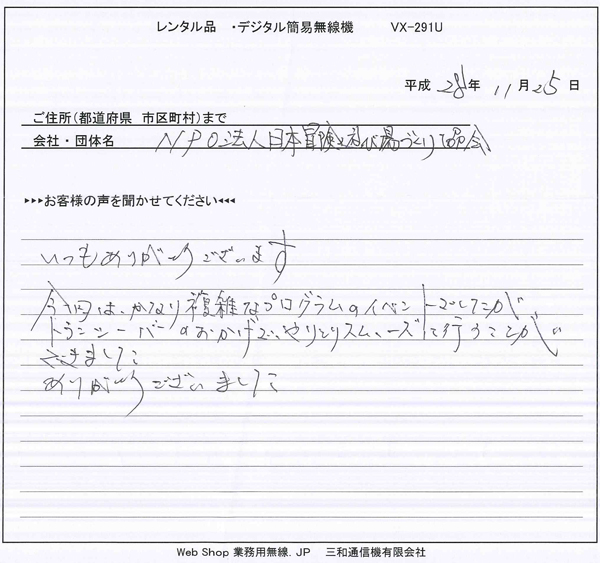 レンタル品 ・デジタル簡易無線機 VX-291U
平成 28 年 11 月 25 日
ご住所(都道府県 市区町村)まで
会社・団体名 NPO法人日本冒険遊び場づくり協会
▸▸▸お客様の声を聞かせてください◂◂◂
いつもありがとうございます
今回は、かなり複雑なプログラムのイベントでしたが
トランシーバーのおかげで、やりとりスムーズに行うことが
できました
ありがとうございました
Web Shop 業務用無線.JP 三和通信機有限会社